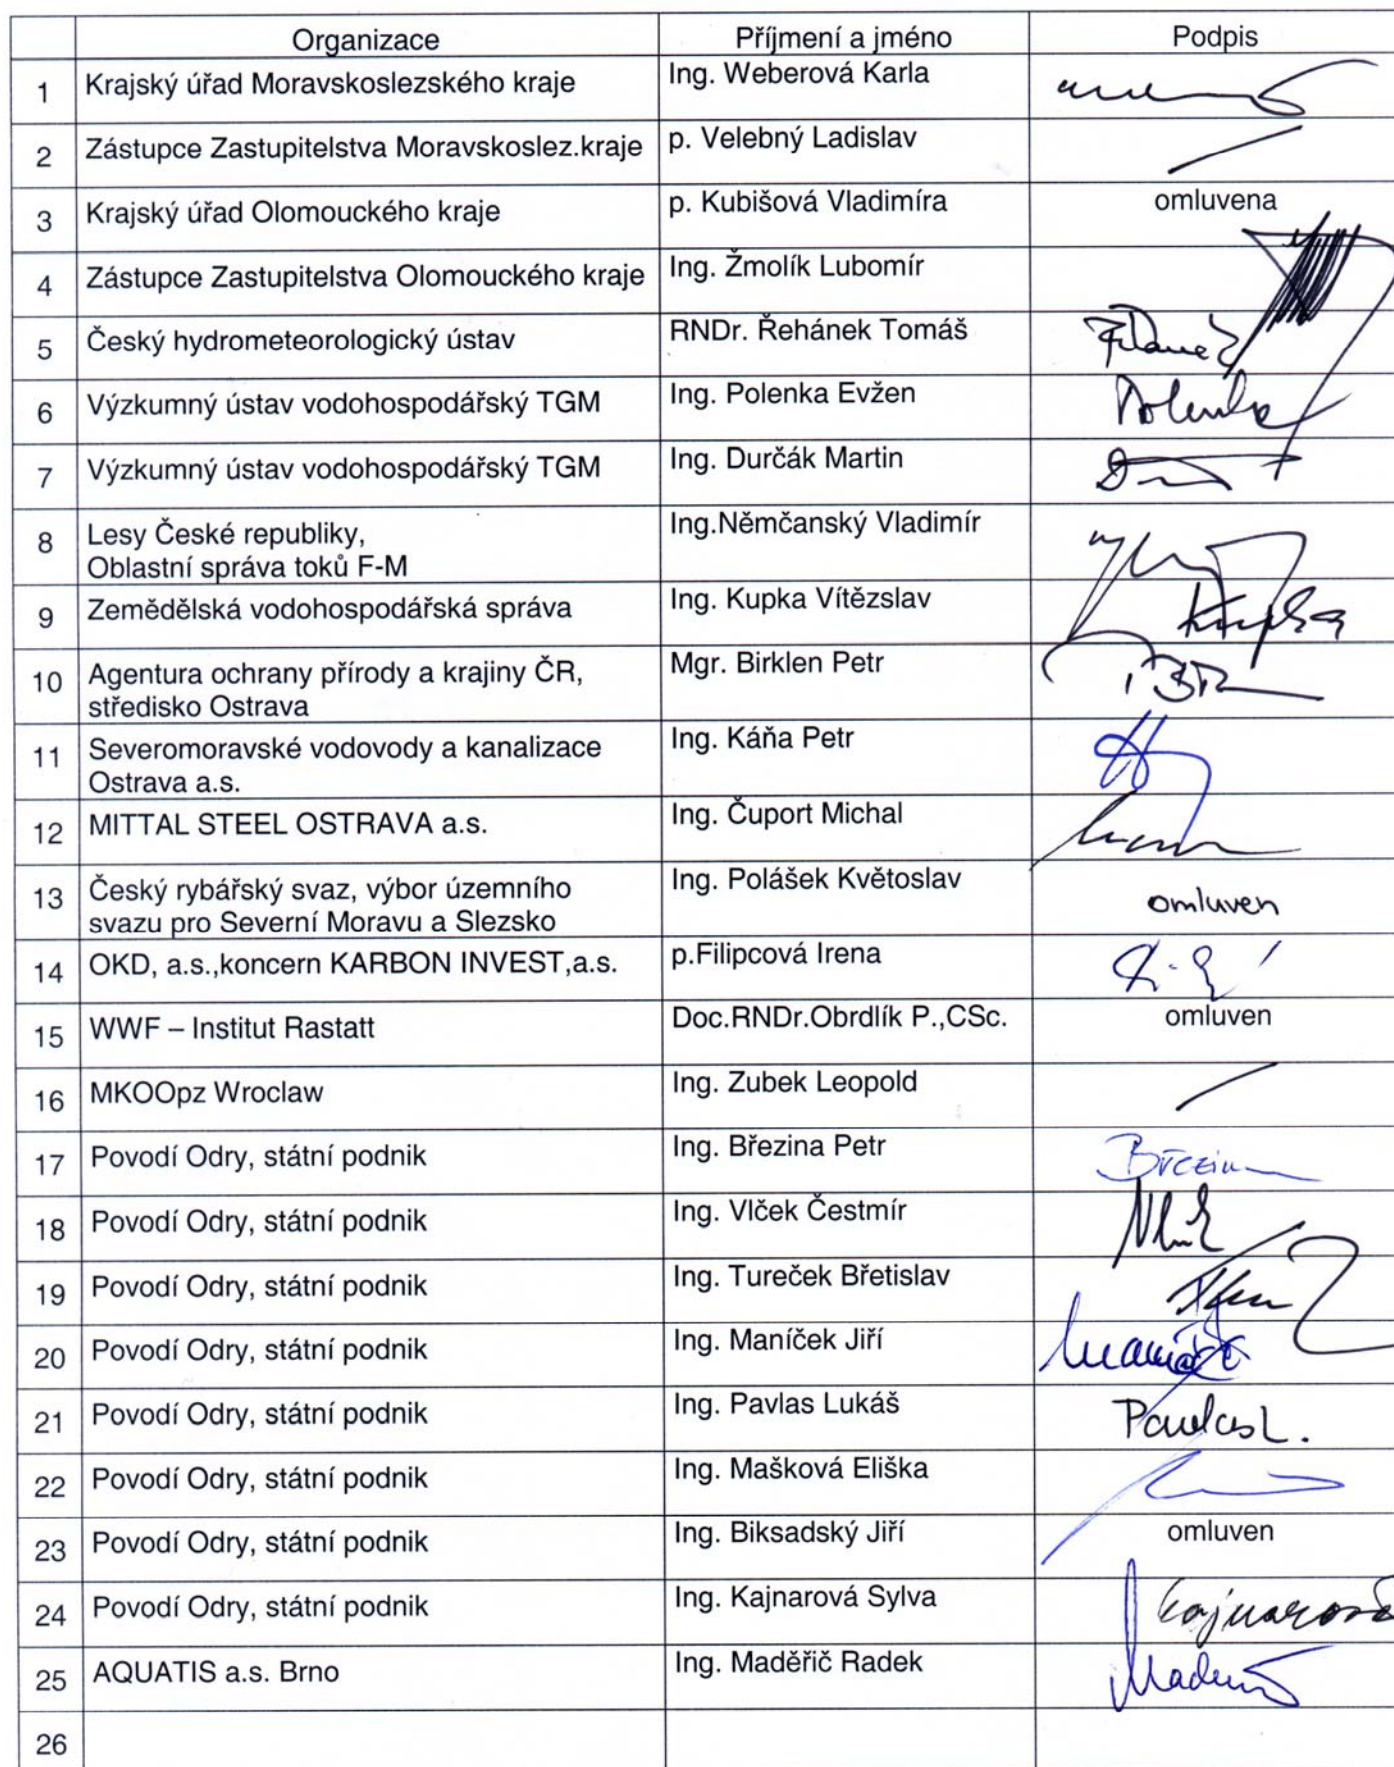 Organizace Příjmení a jméno Podpis
1 Krajský úřad Moravskoslezského kraje Ing. Weberová Karla
2 Zástupce Zastupitelstva Moravskoslez.kraje p. Velebný Ladislav
3 Krajský úřad Olomouckého kraje p. Kubišová Vladimíra omluvena
4 Zástupce Zastupitelstva Olomouckého kraje Ing. Žmolík Lubomír
5 Český hydrometeorologický ústav RNDr. Řehánek Tomáš
6 Výzkumný ústav vodohospodářský TGM Ing. Polenka Evžen Polenka
7 Výzkumný ústav vodohospodářský TGM Ing. Durčák Martin
8 Lesy České republiky, Ing.Němčanský Vladimír
Oblastní správa toků F-M
9 Zemědělská vodohospodářská správa Ing. Kupka Vítězslav Kupka
10 Agentura ochrany přírody a krajiny ČR, Mgr. Birklen Petr
středisko Ostrava
11 Severomoravské vodovody a kanalizace Ing. Káňa Petr
Ostrava a.s.
12 MITTAL STEEL OSTRAVA a.s. Ing. Čuport Michal
13 Český rybářský svaz, výbor územního Ing. Polášek Květoslav omluven
svazu pro Severní Moravu a Slezsko
14 OKD, a.s.,koncern KARBON INVEST,a.s. p.Filipcová Irena
15 WWF – Institut Rastatt Doc.RNDr.Obrdlík P.,CSc. omluven
16 MKOOpz Wroclaw Ing. Zubek Leopold
17 Povodí Odry, státní podnik Ing. Březina Petr Březina
18 Povodí Odry, státní podnik Ing. Vlček Čestmír
19 Povodí Odry, státní podnik Ing. Tureček Břetislav
20 Povodí Odry, státní podnik Ing. Maníček Jiří
21 Povodí Odry, státní podnik Ing. Pavlas Lukáš Pavlas L.
22 Povodí Odry, státní podnik Ing. Mašková Eliška
23 Povodí Odry, státní podnik Ing. Biksadský Jiří omluven
24 Povodí Odry, státní podnik Ing. Kajnarová Sylva Kajnarová
25 AQUATIS a.s. Brno Ing. Maděřič Radek
26